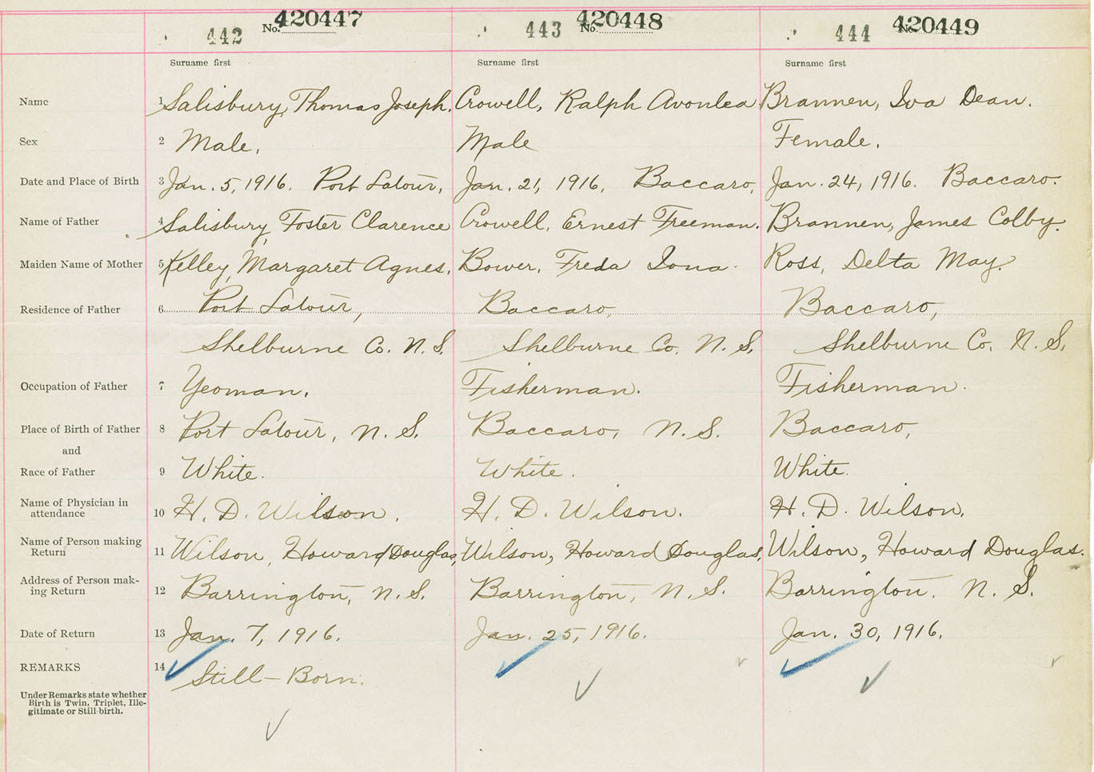 442 No. 420447 443 No. 420448 444 No. 420449
Surname first Surname first Surname first
Name 1 Salisbury, Thomas Joseph. Crowell, Ralph Avonlea Brannen, Iva Dean.
Sex 2 Male. Male Female.
Date and Place of Birth 3 Jan. 5, 1916. Port Latour, Jan. 21, 1916, Baccaro, Jan. 24, 1916. Baccaro.
Name of Father 4 Salisbury, Foster Clarence Crowell, Ernest Freeman. Brannen, James Colby.
Maiden Name of Mother 5 Kelley, Margaret Agnes, Bower, Freda Iona. Ross, Delta May.
Residence of Father 6 Port Latour, Baccaro, Baccaro,
Shelburne Co. N.S. Shelburne Co. N.S. Shelburne Co. N.S.
Occupation of Father 7 Yeoman. Fisherman. Fisherman.
Place of Birth of Father 8 Port Latour, N.S. Baccaro, N.S. Baccaro,
and
Race of Father 9 White. White. White.
Name of Physician in
attendance 10 H. D. Wilson. H. D. Wilson. H. D. Wilson.
Name of Person making
Return 11 Wilson, Howard Douglas, Wilson, Howard Douglas, Wilson, Howard Douglas.
Address of Person mak-
ing Return 12 Barrington, N.S. Barrington, N.S. Barrington. N.S.
Date of Return 13 Jan. 7, 1916. Jan. 25, 1916. Jan. 30, 1916.
REMARKS 14 Still-Born.
Under Remarks state whether
Birth is Twin, Triplet, Ille-
gitimate or Still-birth.